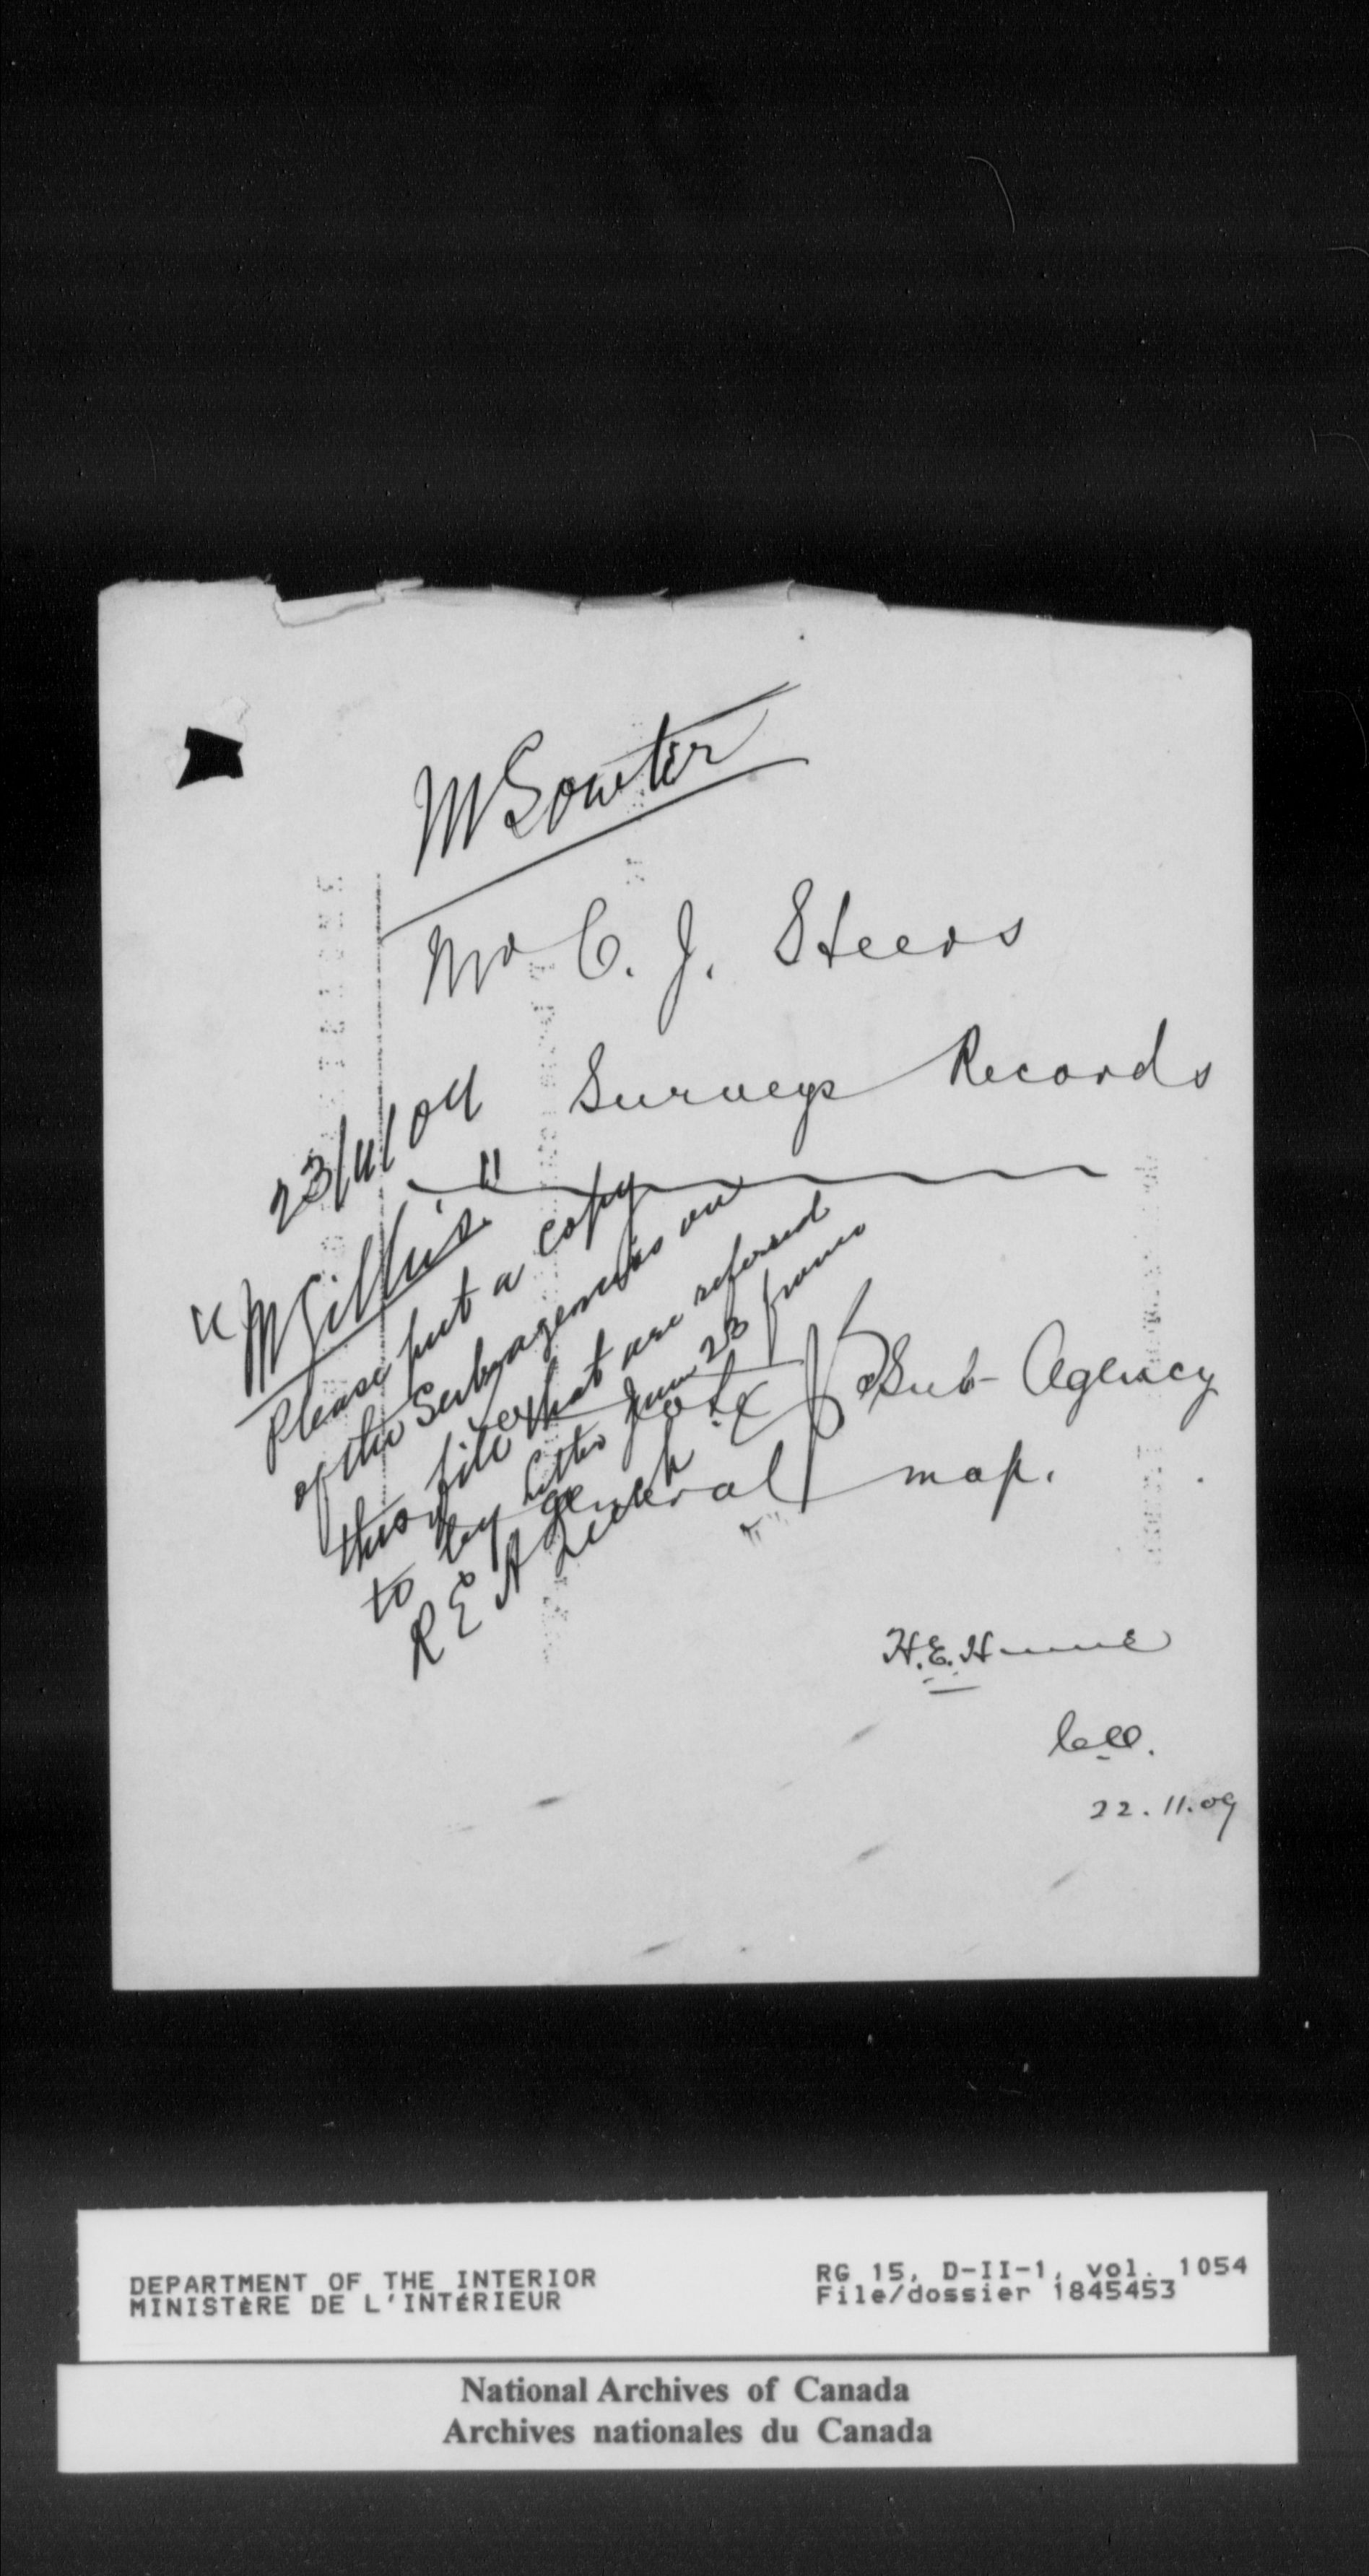 M Sowter
Mr C. J. Steers
Surveys Records
23/11/09
"M Gillis"
Please put a copy
of the Subagencies on
this file that are referred
to by letter June 23 from
R E A Leech
Sub-Agency
general map.
H.E. Hume
22.11.09
DEPARTMENT OF THE INTERIOR
MINISTÈRE DE L'INTÉRIEUR
RG 15, D-II-1, vol. 1054
File/dossier 1845453
National Archives of Canada
Archives nationales du Canada